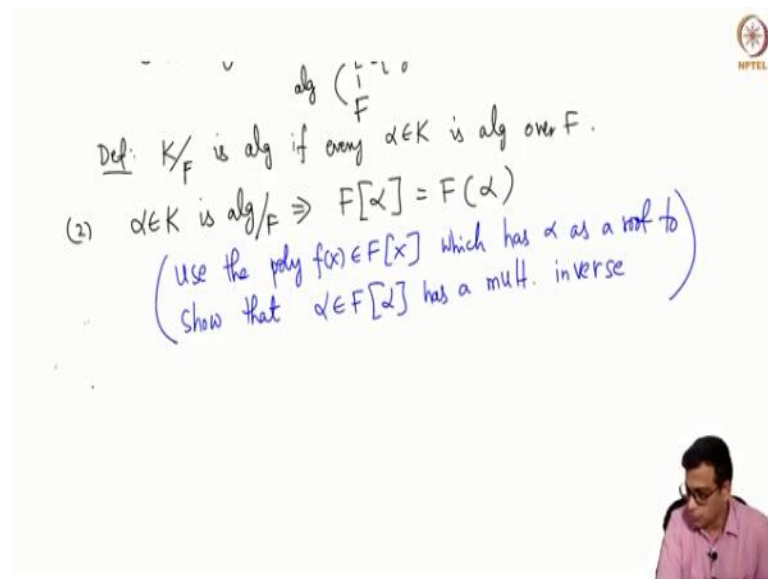 NPTEL
alg (
F
Def: K/F is alg if every α∈K is alg over F.
(2) α∈K is alg/F ⇒ F[α] = F(α)
(use the poly f(x)∈F[x] which has α as a root to
show that α∈F[α] has a mult. inverse)